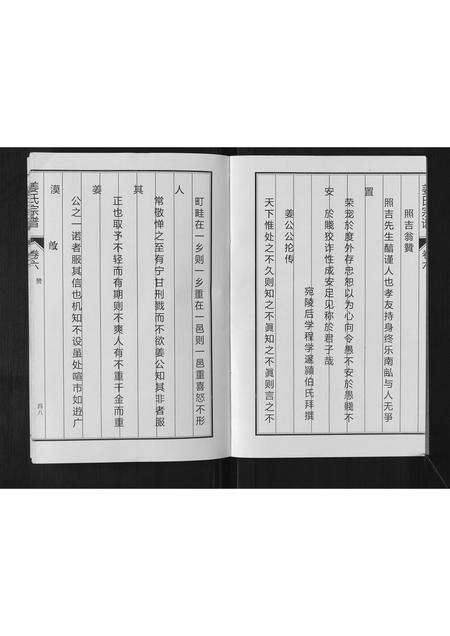 姜氏宗谱
卷六
照吉翁贊
照吉先生醕谨人也孝友持身终乐南畝与人无爭
置
荣宠於度外存忠恕以为心向令愚不安於愚賤不
安
於賤狡诈性成安足见称於君子哉
宛陵后学程学邃頴伯氏拜撰
姜公公抡传
天下惟处之不久则知之不眞知之不眞则言之不
町畦在一乡则一乡重在一邑则一邑重喜怒不形
人
常敬惮之至有宁甘刑戮而不欲姜公知其非者服
其
正也取予不轻而有期则不爽人有不重千金而重
姜
公之一诺者服其信也机知不设虽处喧市如逰广
漠
姜氏宗谱
卷六
赞
四八